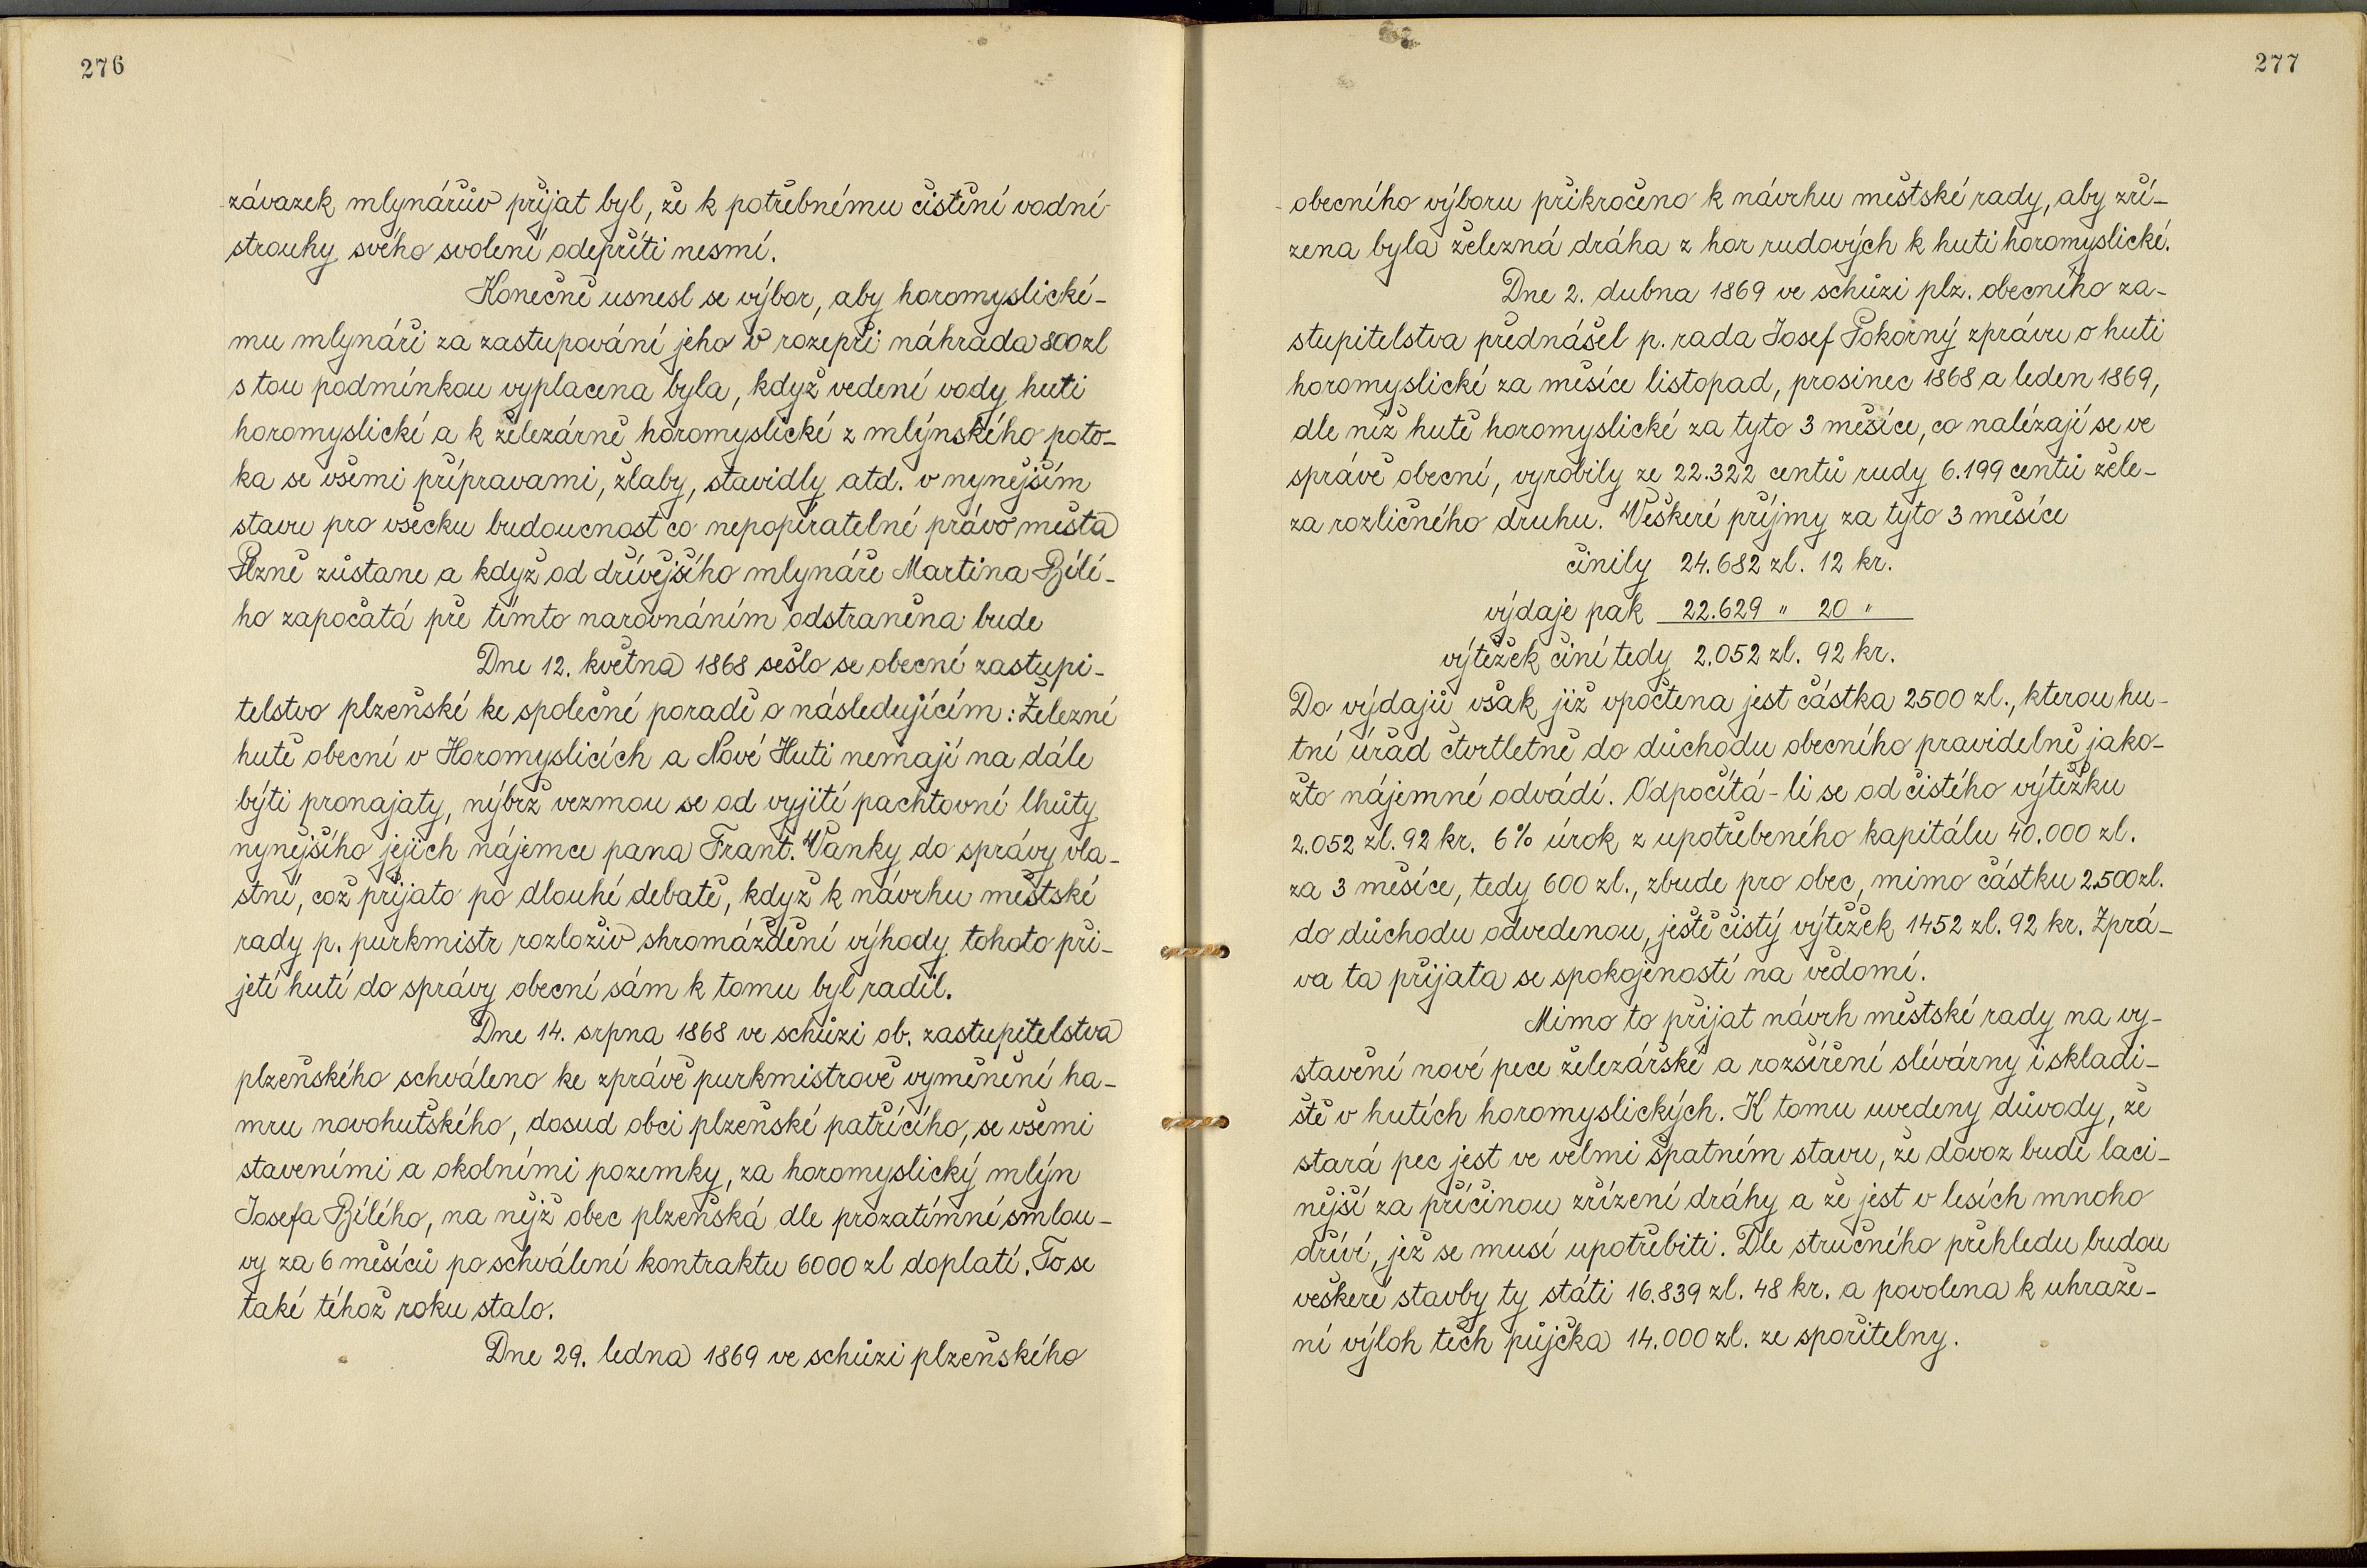 276
závazek mlynářův přijat byl, že k potřebnému čistění vodní
strouhy svého svolení odepříti nesmí.
Konečně usnesl se výbor, aby horomyslické-
mu mlynáři za zastupování jeho v rozepři náhrada 800 zl
s tou podmínkou vyplacena byla, když vedení vody huti
horomyslické a k železárně horomyslické z mlýnského poto-
ka se všemi přípravami, žlaby, stavidly atd. v nynějším
stavu pro všecku budoucnost co nepopíratelné právo města
Plzně zůstane a když od dřívějšího mlynáře Martina Bílé-
ho započatá pře tímto narovnáním odstraněna bude
Dne 12. května 1868 sešlo se obecní zastupi-
telstvo plzeňské ke společné poradě o následujícím: Železné
hutě obecní v Horomyslicích a Nové Huti nemají na dále
býti pronajaty, nýbrž vezmou se od vyjití pachtovní lhůty
nynějšího jejich nájemce pana Frant. Vaňky do správy vla-
stní, což přijato po dlouhé debatě, když k návrhu městské
rady p. purkmistr rozloživ shromáždění výhody tohoto při-
jetí hutí do správy obecní sám k tomu byl radil.
Dne 14. srpna 1868 ve schůzi ob. zastupitelstva
plzeňského schváleno ke zprávě purkmistrově vyměnění ha-
mru novohuťského, dosud obci plzeňské patřícího, se všemi
staveními a okolními pozemky, za horomyslický mlýn
Josefa Bílého, na nějž obec plzeňská dle prozatímní smlou-
vy za 6 měsíců po schválení kontraktu 6000 zl doplatí. To se
také téhož roku stalo.
Dne 29. ledna 1869 ve schůzi plzeňského
277
obecního výboru přikročeno k návrhu městské rady, aby zří-
zena byla železná dráha z hor rudových k huti horomyslické.
Dne 2. dubna 1869 ve schůzi plz. obecního za-
stupitelstva přednášel p. rada Josef Pokorný zprávu o huti
horomyslické za měsíce listopad, prosinec 1868 a leden 1869,
dle níž hutě horomyslické za tyto 3 měsíce, co nalézají se ve
správě obecní, vyrobily ze 22.322 centů rudy 6.199 centů žele-
za rozličného druhu. Veškeré příjmy za tyto 3 měsíce
činily 24.682 zl. 12 kr.
výdaje pak 22.629 " 20 "
výtěžek činí tedy 2.052 zl. 92 kr.
Do výdajů však již vpočtena jest částka 2500 zl., kterou hu-
tní úřad čtvrtletně do důchodu obecního pravidelně jako-
žto nájemné odvádí. Odpočítá-li se od čistého výtěžku
2.052 zl. 92 kr. 6% úrok z upotřebeného kapitálu 40.000 zl.
za 3 měsíce, tedy 600 zl., zbude pro obec, mimo částku 2.500 zl.
do důchodu odvedenou, ještě čistý výtěžek 1452 zl. 92 kr. Zprá-
va ta přijata se spokojeností na vědomí.
Mimo to přijat návrh městské rady na vy-
stavění nové pece železářské a rozšíření slévárny i skladi-
ště v hutích horomyslických. K tomu uvedeny důvody, že
stará pec jest ve velmi špatném stavu, že dovoz bude laci-
nější za příčinou zřízení dráhy a že jest v lesích mnoho
dříví, jež se musí upotřebiti. Dle stručného přehledu budou
veškeré stavby ty státi 16.839 zl. 48 kr. a povolena k uhraže-
ní výloh těch půjčka 14.000 zl. ze spořitelny.